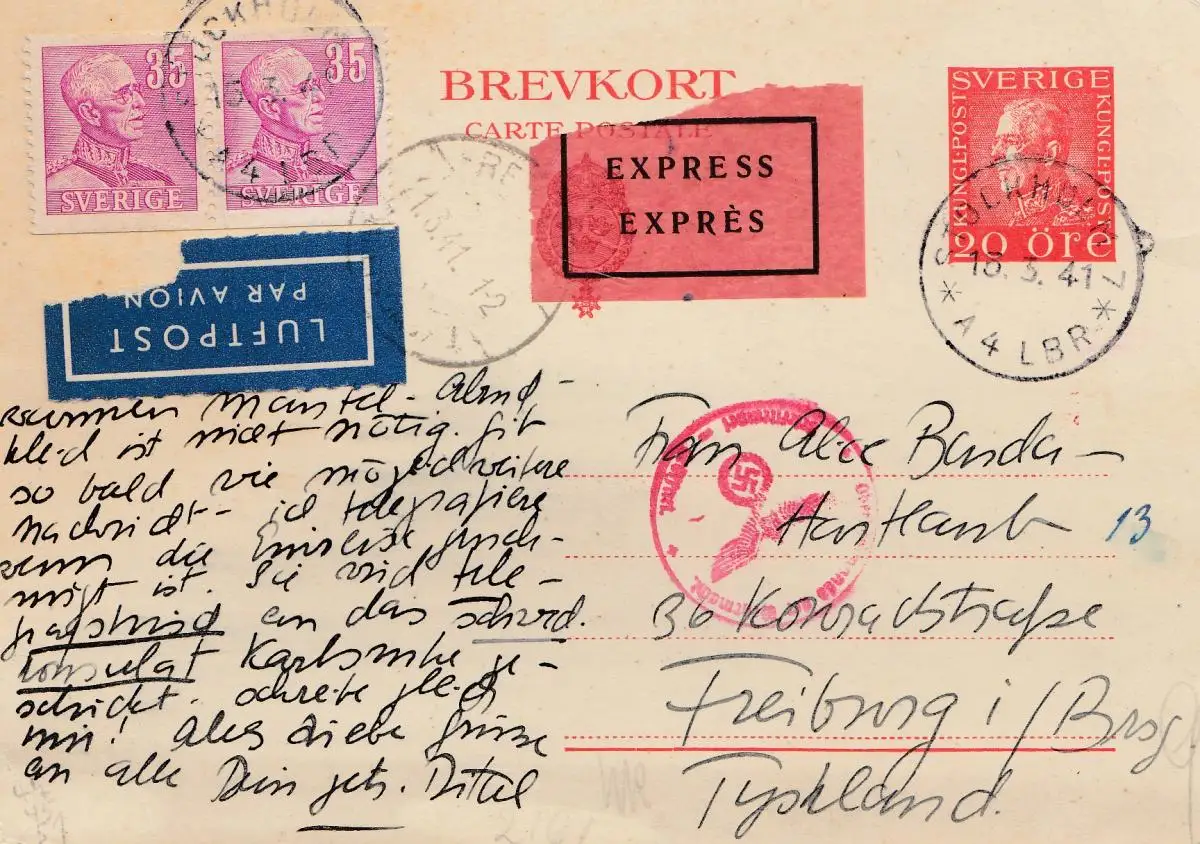 35 35
SVERIGE SVERIGE
BREVKORT
CARTE POSTALE
EXPRESS
EXPRÈS
SVERIGE
KUNGL·POST
KUNGL·POST
20 ÖRE
STOCKHOLM 7
18. 3. 41
* A 4 LBR *
LUFTPOST
PAR AVION
Mantel - Abend-
kleid ist nicht nötig. Gib
so bald wie möglich weitere
Nachricht - ich telegrafiere
wenn die Einreise geneh-
migt ist. Sie wird tele-
an das schwed.
Konsulat Karlsruhe ge-
schickt. Schreibe gleich
mir! Alles Liebe Grüsse
an alle Dein
Frau Alice
13
36 Konradstraße
Freiburg i/Brsg
Tyskland.